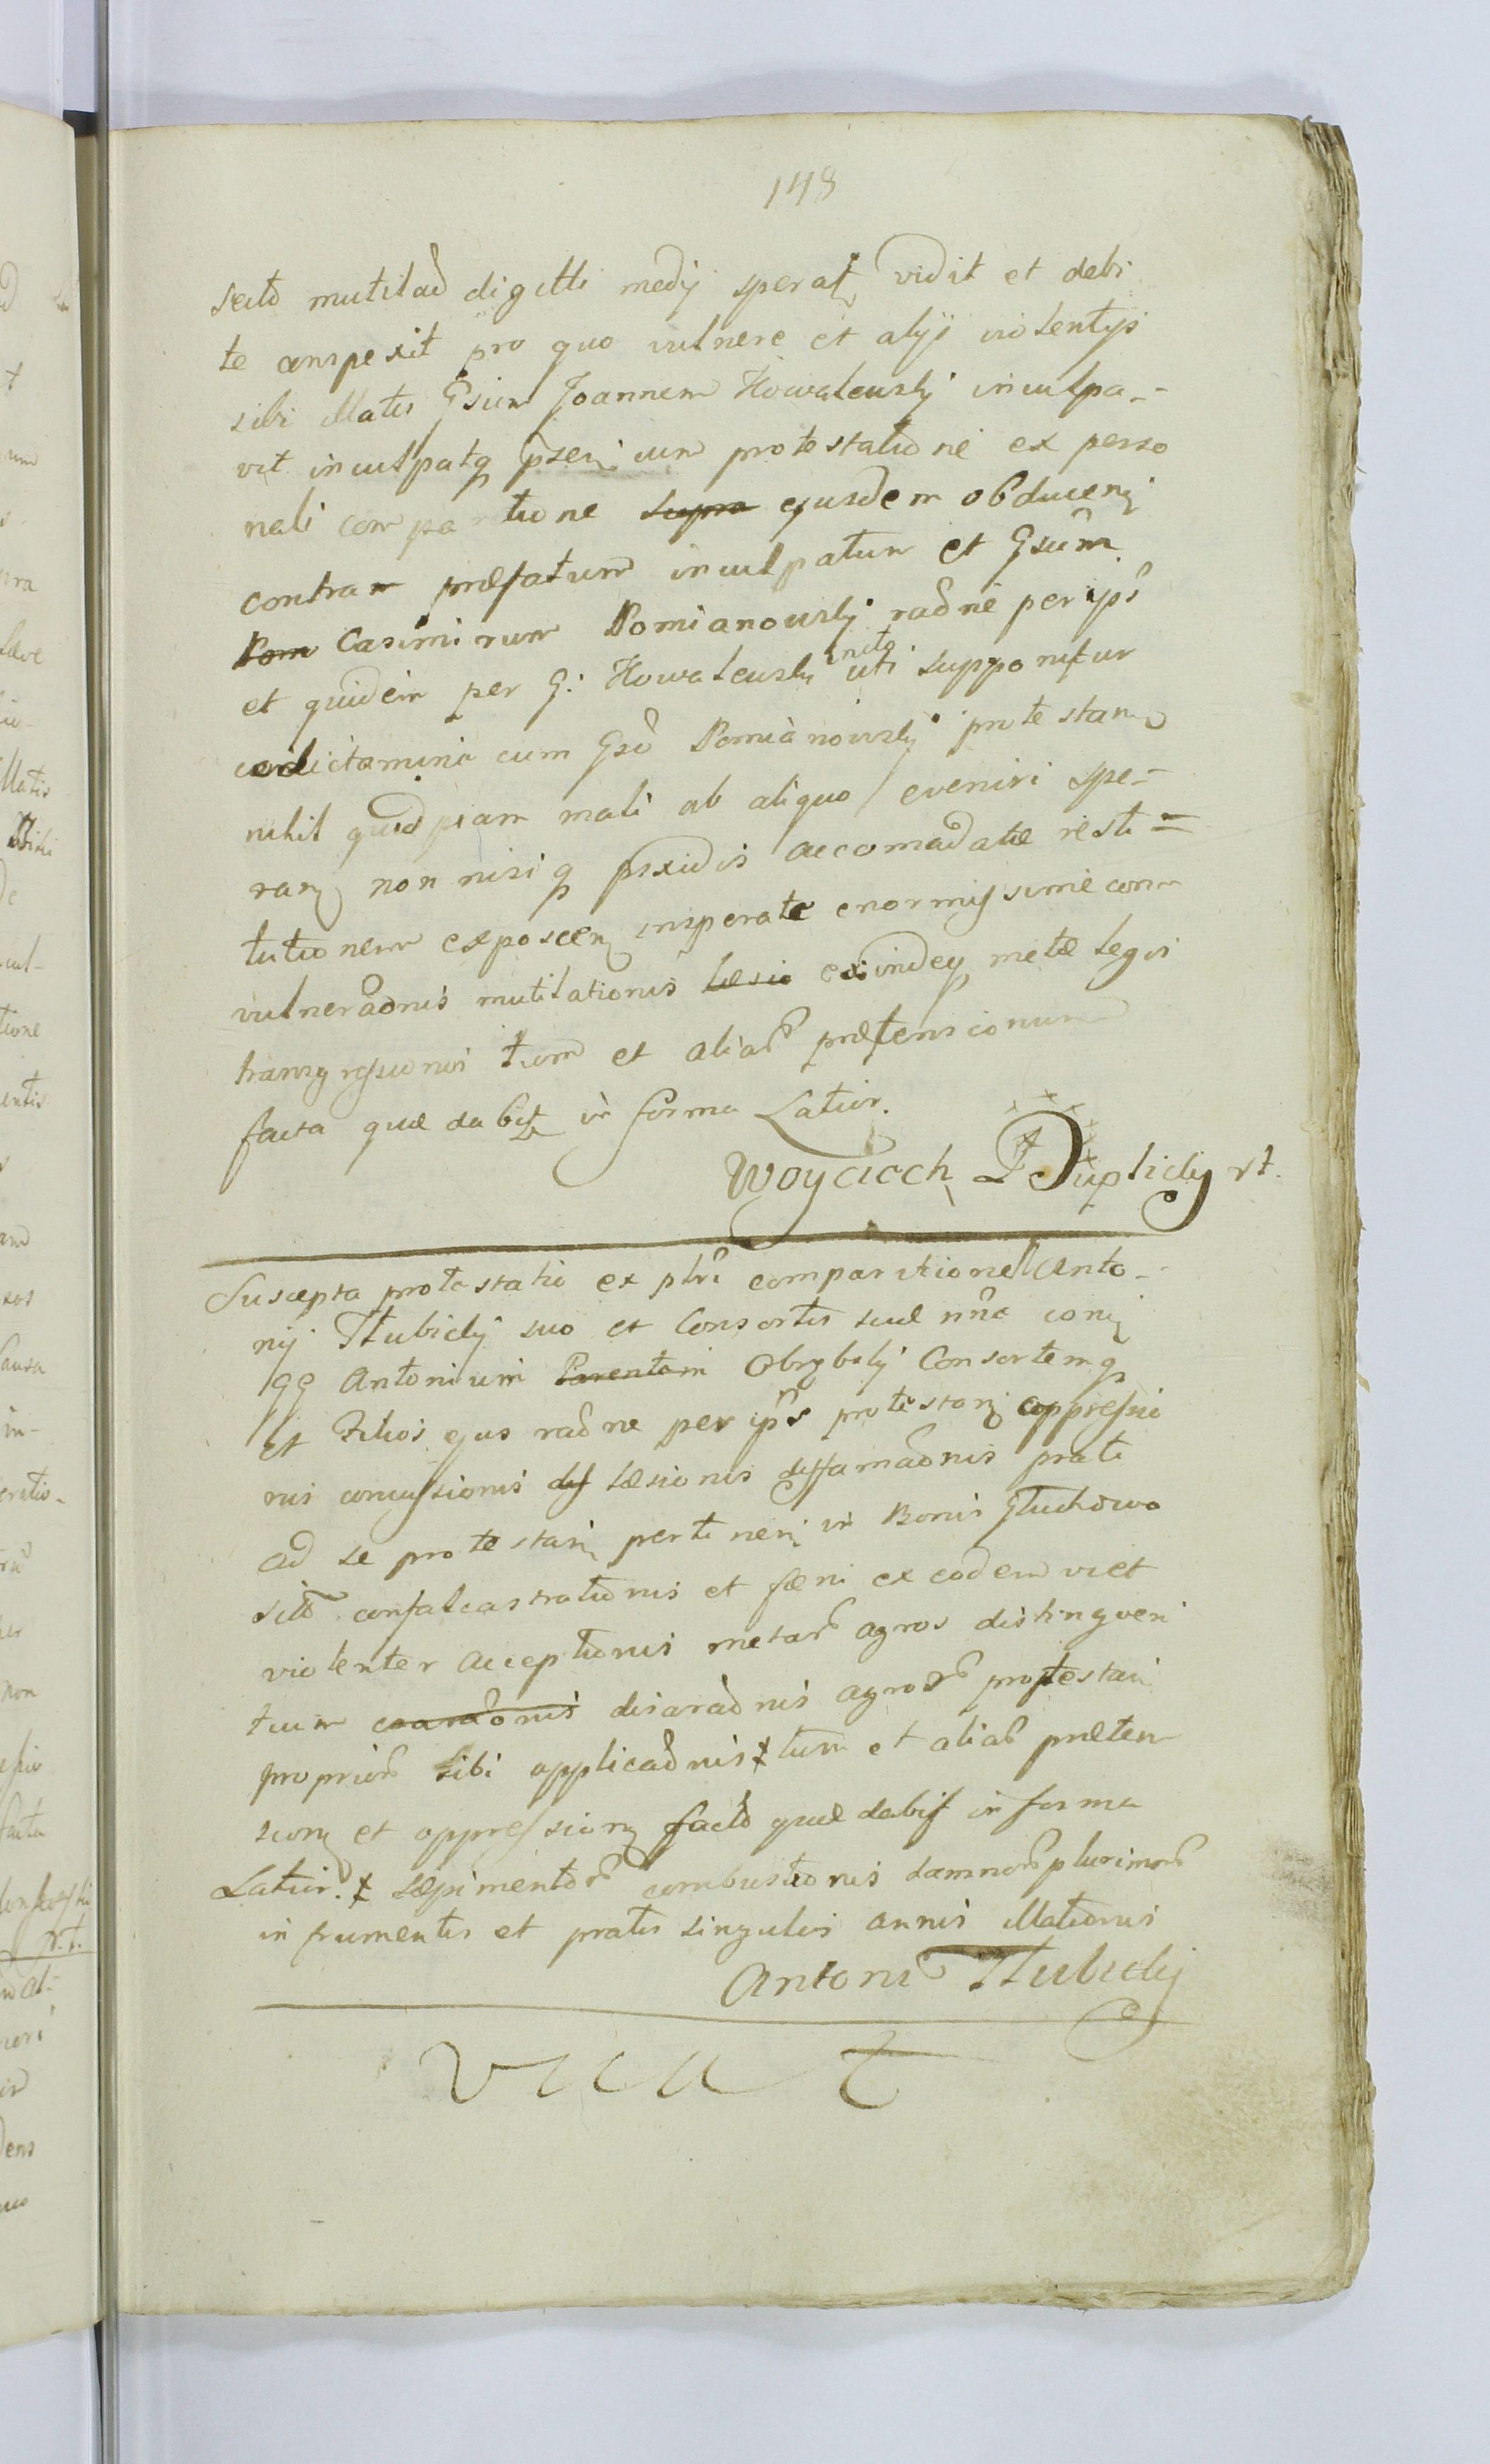 148
mutilaō digitti medÿ sperat vidit et debi
te conspexit pro quo vulnere et alÿs violentÿs
sibi illatis Gsum Joannem Kowalewskÿ inculpa-
vit inculpatq pserī cum protestatione ex perso
nali compar tione supra ejusdem obducenī
contra præfatum inculpatum et Gsum
Pom Casimirum Pomianowskÿ raōne per ips
et quidem per G: Kowalewskī inito uti supponitur
condictamine cum Gsō Pomianowskÿ protestan
nihil quidpiam mali ab aliquo evenire spe-
ran non nisi q pixidis accomadatæ resti=
tutionem exposcen insperate enormissime con
vulneraōnis mutilationis læsio exindeq metæ legis
transgressionis tum et aliar prætensionum
facta quæ dabit in forma Latior.
Woyciech Duplicky
Suscepta protestatio ex plri comparitione Anto-
nÿ Tłubickÿ suo et Consortis suæ nne con
GG Antonium Parentem Obrębskÿ Consortemq
et Filios ejus raōne per ips protestan oppressio
nis concussionis def læsionis deffamaōnis prati
ad se protestan pertinen in Bonis Głuchowo
sitō confalcastrationis et fæni ex eodem vi et
violenter acceptionis metar agros distingven
tium coaraōnis disaraōnis agror protestan
proprior sibi applicaōnis ‡ tum et aliar præten
sion et oppression facto quæ dabit in forma
Latior. ‡ sæpimentor combustionis damnor plurimor
in frumentis et pratis singulis annis illationis
Antoni Tłubicky